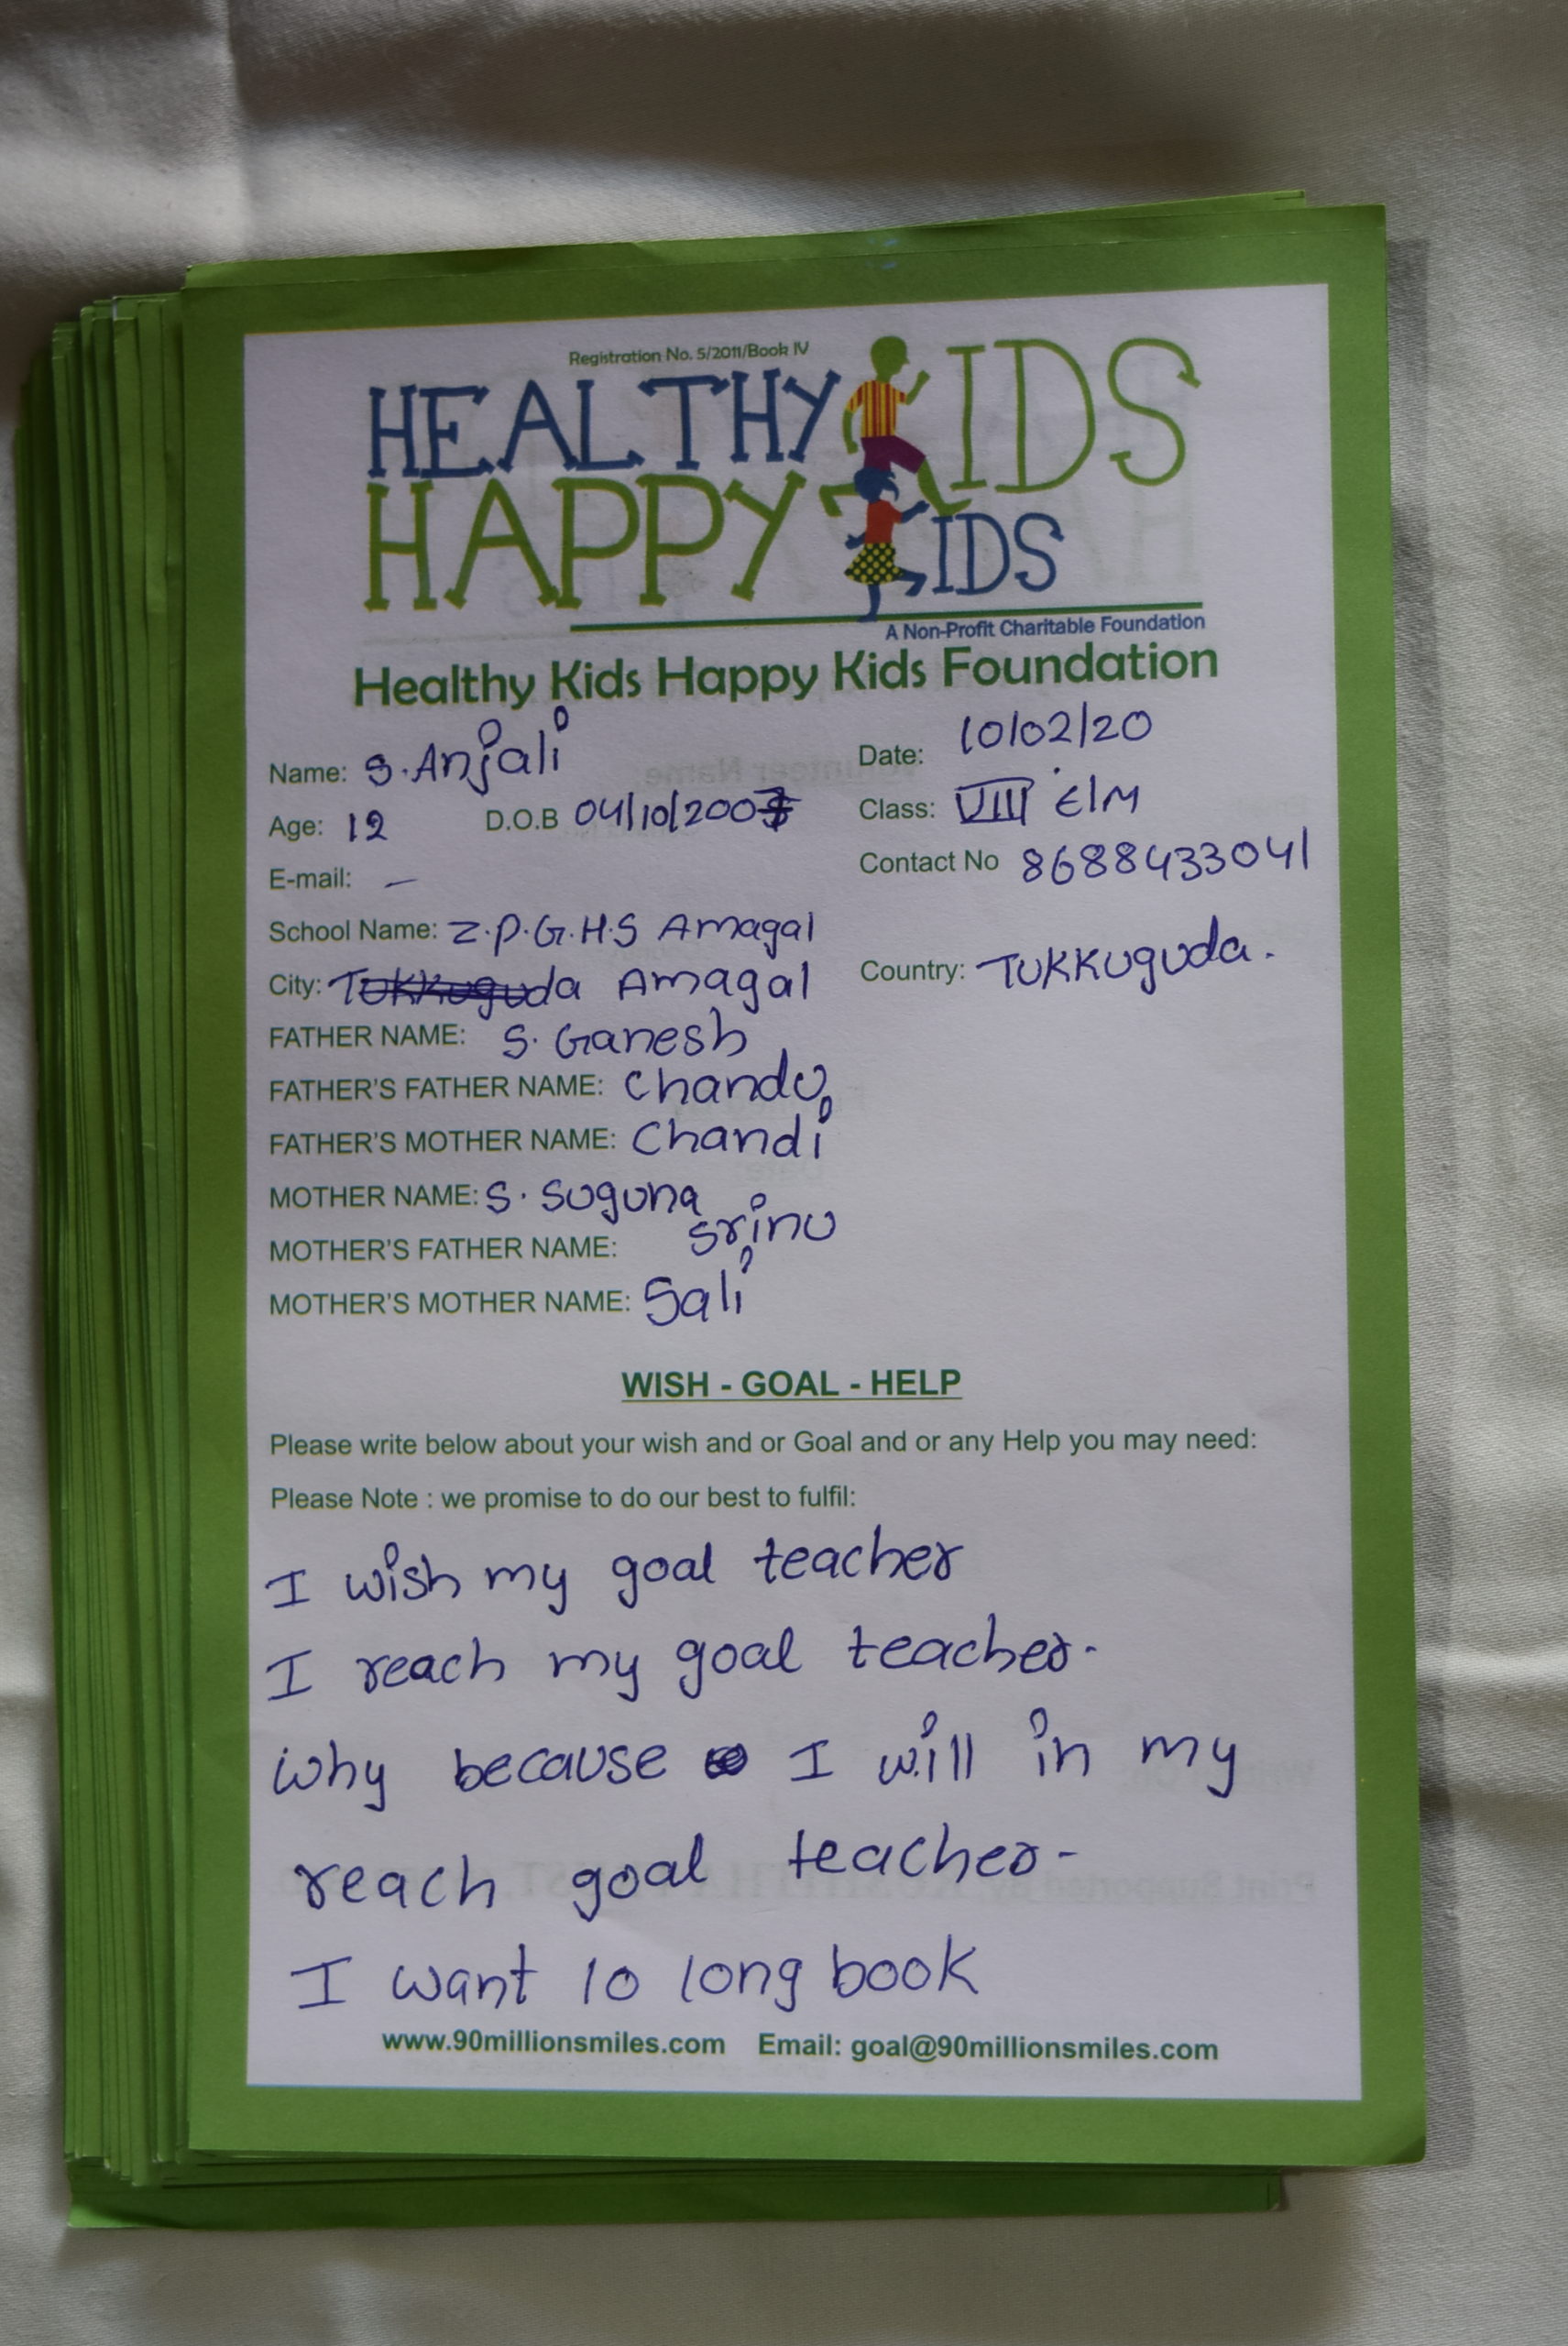 Registration No. 5/2011/Book IV
HEALTHY KIDS
HAPPY KIDS
A Non-Profit Charitable Foundation
Healthy Kids Happy Kids Foundation
Name: S.Anjali Date: 10/02/20
Age: 12 D.O.B 04/10/2007 Class: VIII E/M
E-mail: — Contact No 8688433041
School Name: Z.P.G.H.S Amagal
City: Tukkuguda Amagal Country: TUKKUguda.
FATHER NAME: S. Ganesh
FATHER'S FATHER NAME: Chandu
FATHER'S MOTHER NAME: Chandi
MOTHER NAME: S. Suguna
MOTHER'S FATHER NAME: Srinu
MOTHER'S MOTHER NAME: Sali
WISH - GOAL - HELP
Please write below about your wish and or Goal and or any Help you may need:
Please Note : we promise to do our best to fulfil:
I wish my goal teacher
I reach my goal teacher.
why because I will in my
reach goal teacher.
I want 10 long book
www.90millionsmiles.com Email: goal@90millionsmiles.com